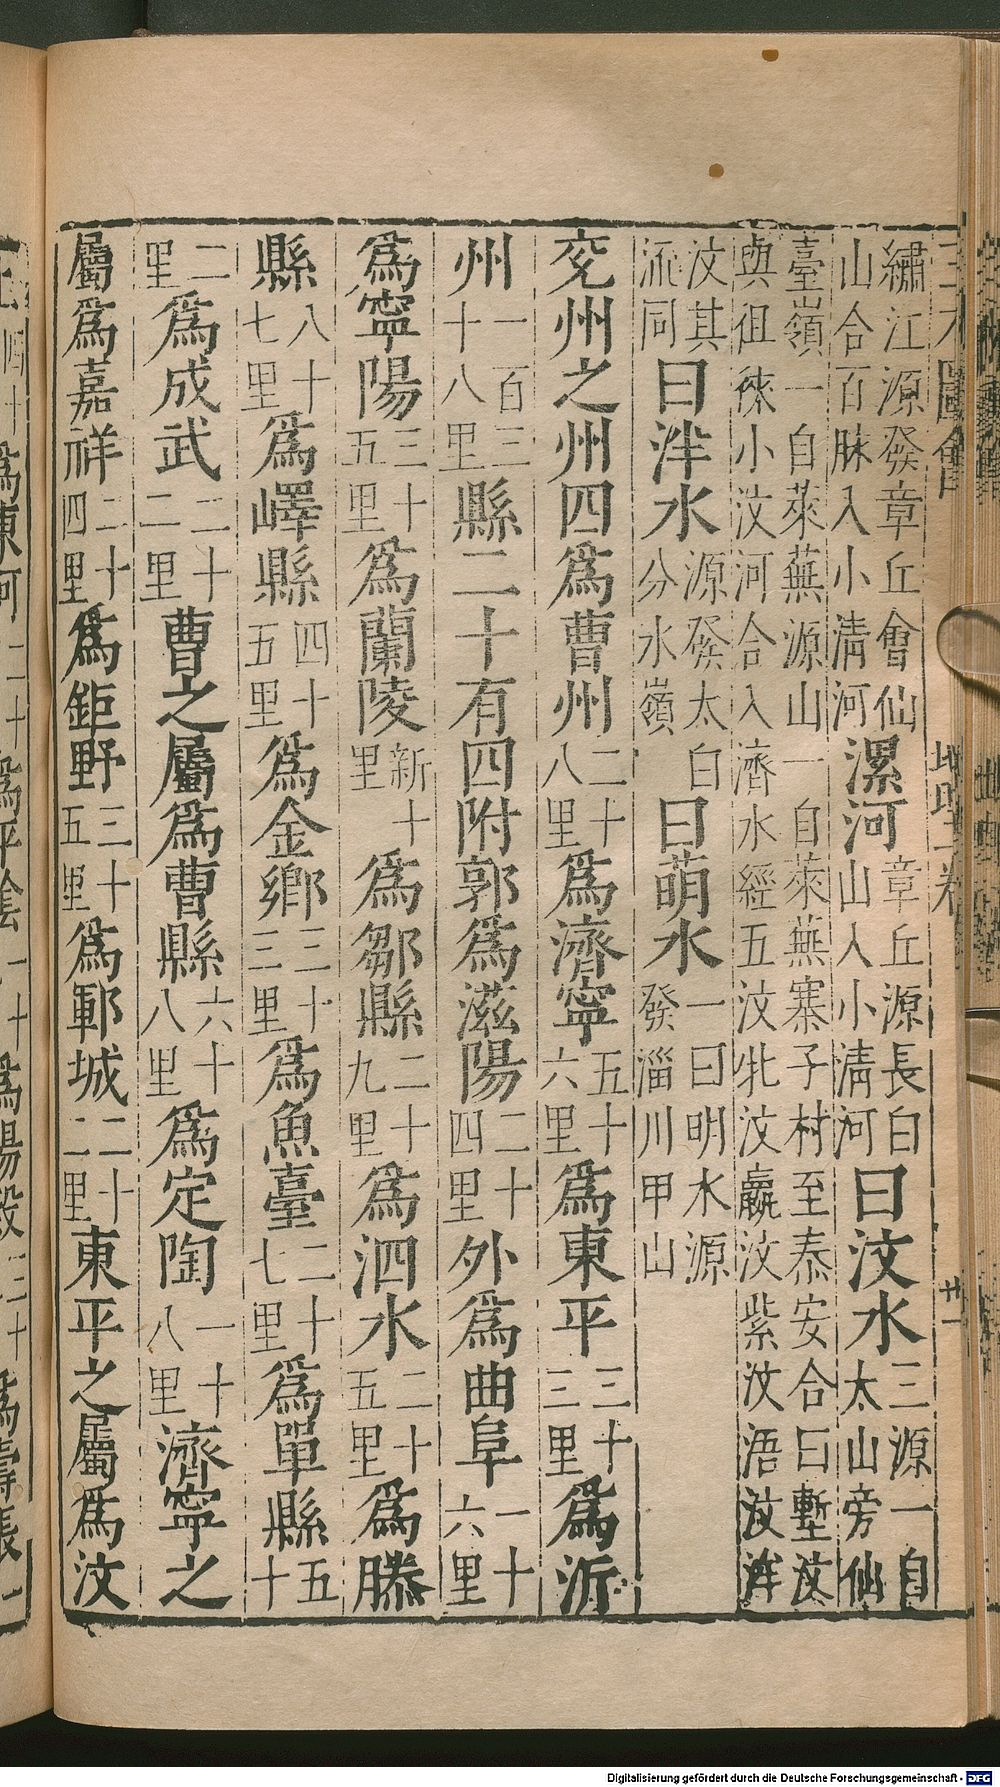 三才圖會
地理一卷
廿一
繡江源發章丘會仙山合百脉入小淸河漯河章丘源長白山入小淸河曰汶水三源一自太山旁仙
臺嶺一自萊蕪源山一自萊蕪寨子村至泰安合曰塹汶與徂徠小汶河合入濟水經五汶牝汶嬴汶紫汶浯汶洋
汶其流同曰泮水源發太白分水嶺曰萌水一曰明水源發淄川甲山
兗州之州四爲曹州二十八里爲濟寧五十六里爲東平三十三里爲沂
州一百三十八里縣二十有四附郭爲滋陽二十四里外爲曲阜一十六里
爲寧陽三十五里爲蘭陵新十里爲鄒縣二十九里爲泗水二十五里爲滕
縣八十七里爲嶧縣四十五里爲金鄉三十三里爲魚臺二十七里爲單縣五十
二里爲成武二十二里曹之屬爲曹縣六十八里爲定陶一十八里濟寧之
屬爲嘉祥二十四里爲鉅野三十五里爲鄆城二十二里東平之屬爲汶
爲東阿二十爲平陰一十爲陽穀三十爲壽張一
Digitalisierung gefördert durch die Deutsche Forschungsgemeinschaft - DFG